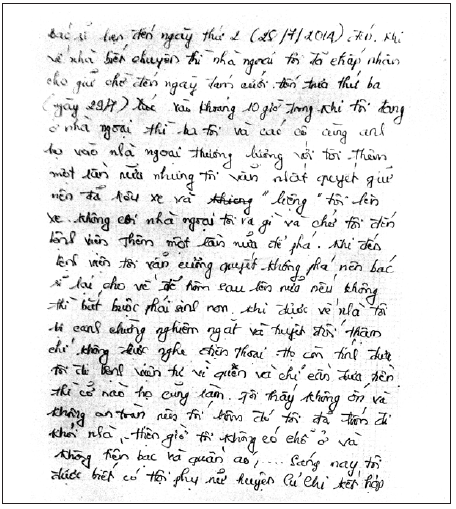 bác sĩ hẹn đến ngày thứ 2 (28/7/2014) đến. Khi
về nhà biết chuyện thì nhà ngoại tôi đã chấp nhận
cho giữ chờ đến ngày đám cưới. Đến trưa thứ ba
(ngày 29/7) lúc vào khoảng 10 giờ trong khi tôi đang
ở nhà ngoại thì ba tôi và các cô cùng anh
họ vào nhà ngoại thương lượng với tôi thêm
một lần nữa nhưng tôi vẫn nhất quyết giữ
nên đã kêu xe và khiêng "liệng" tôi lên
xe. Không coi nhà ngoại tôi ra gì và chở tôi đến
bệnh viện thêm một lần nữa để phá. Khi đến
bệnh viện tôi vẫn cương quyết không phá nên bác
sĩ lại cho về để hôm sau lên nữa nếu không
thì bắt buộc phải sinh non. Khi được về nhà tôi
bị canh chừng nghiêm ngặt và tuyệt đối thậm
chí không được nghe điện thoại. Họ còn tính đưa
tôi đi bệnh viện tư vì quen và chỉ cần đưa tiền
thì cỡ nào họ cũng làm. Tôi thấy không ổn và
không an toàn nên tối hôm đó tôi đã trốn đi
khỏi nhà, hiện giờ tôi không có chỗ ở và
không tiền bạc và quần áo, .... Sáng nay tôi
được biết có Hội phụ nữ huyện Củ Chi kết hợp